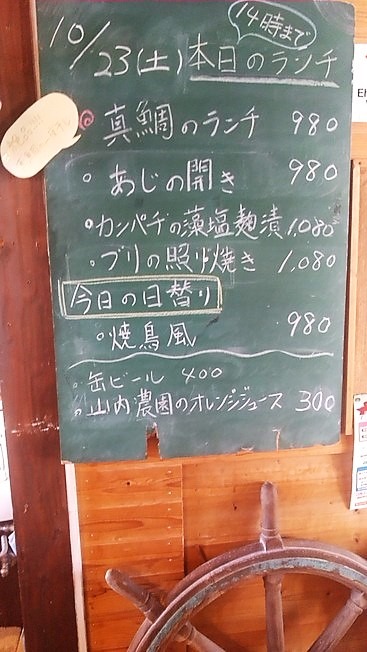 14時まで
10/23(土)本日のランチ
真鯛のランチ 980
。あじの開き 980
・カンパチの藻塩麹漬 1,080
・ブリの照り焼き 1,080
今日の日替り
。焼鳥風 980
。缶ビール 400
。山内農園のオレンジジュース 300